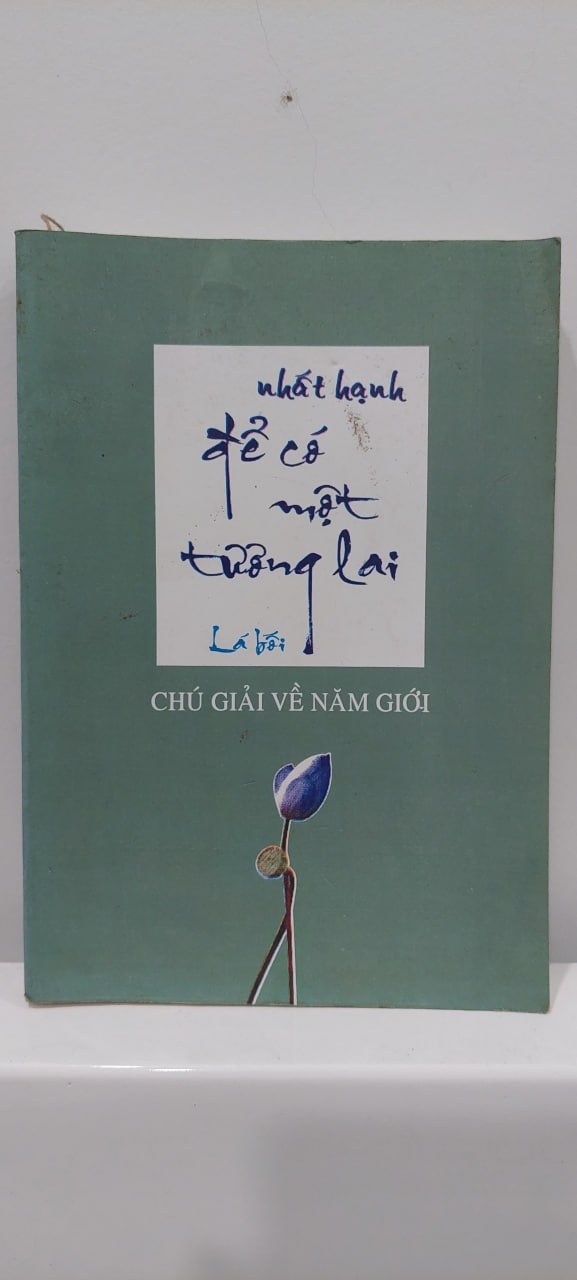 nhất hạnh
để có
một
tương lai
Lá bối
CHÚ GIẢI VỀ NĂM GIỚI